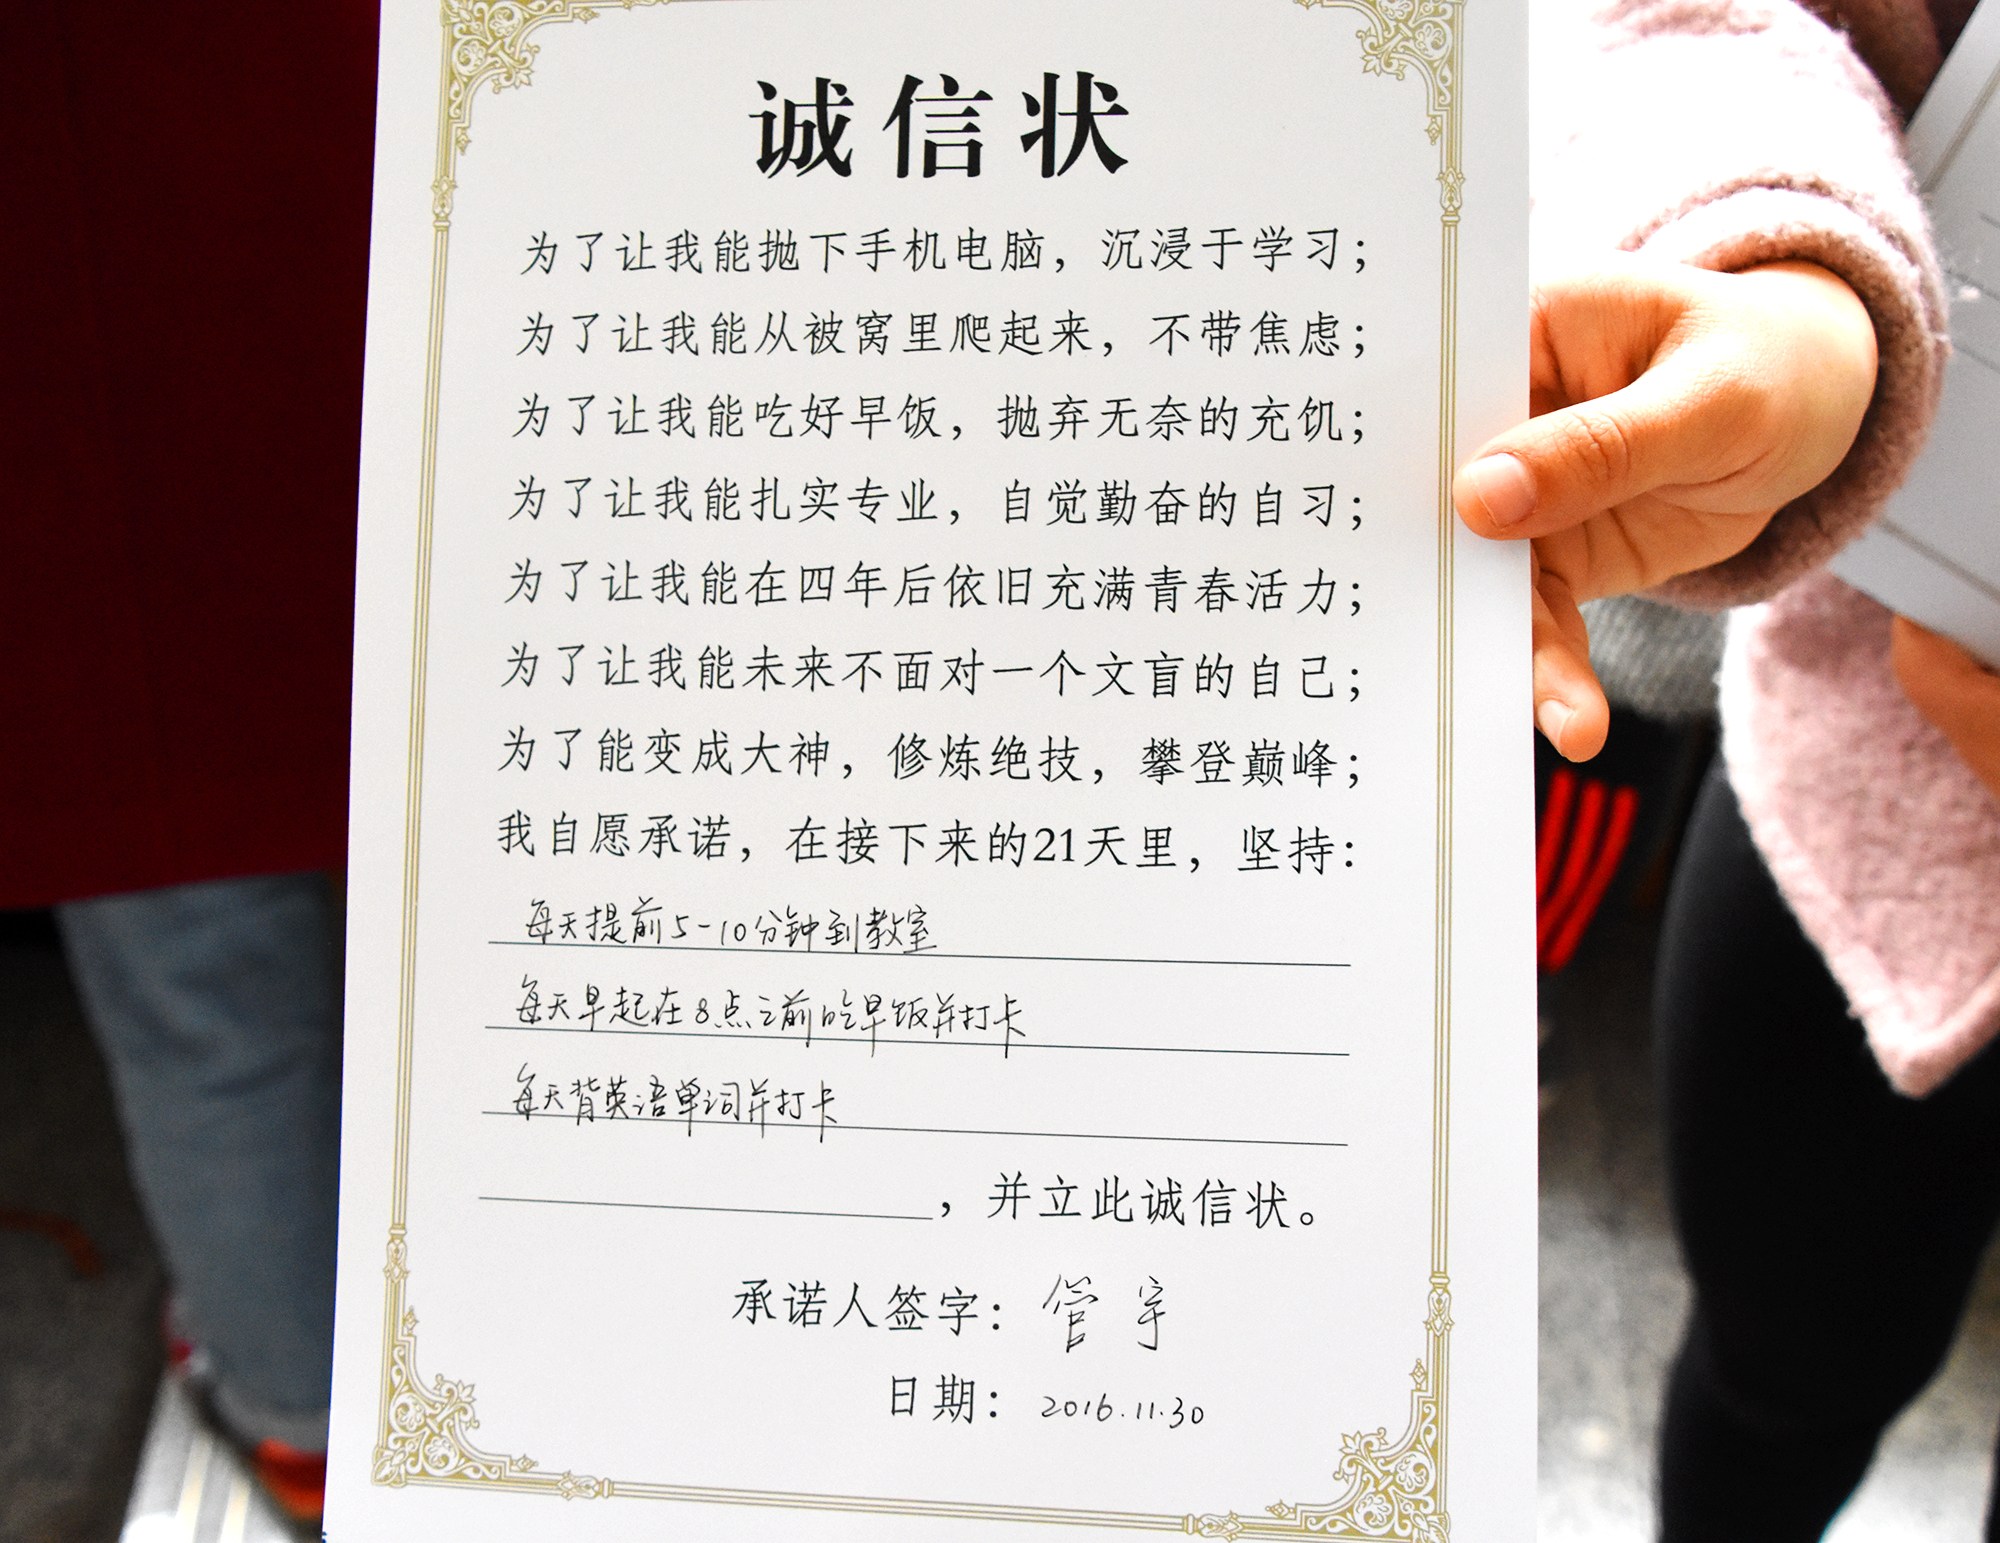 诚信状
为了让我能抛下手机电脑，沉浸于学习；
为了让我能从被窝里爬起来，不带焦虑；
为了让我能吃好早饭，抛弃无奈的充饥；
为了让我能扎实专业，自觉勤奋的自习；
为了让我能在四年后依旧充满青春活力；
为了让我能未来不面对一个文盲的自己；
为了能变成大神，修炼绝技，攀登巅峰；
我自愿承诺，在接下来的21天里，坚持：
每天提前5-10分钟到教室
每天早起在8点之前吃早饭并打卡
每天背英语单词并打卡
，并立此诚信状。
承诺人签字：管宇
日期：2016.11.30